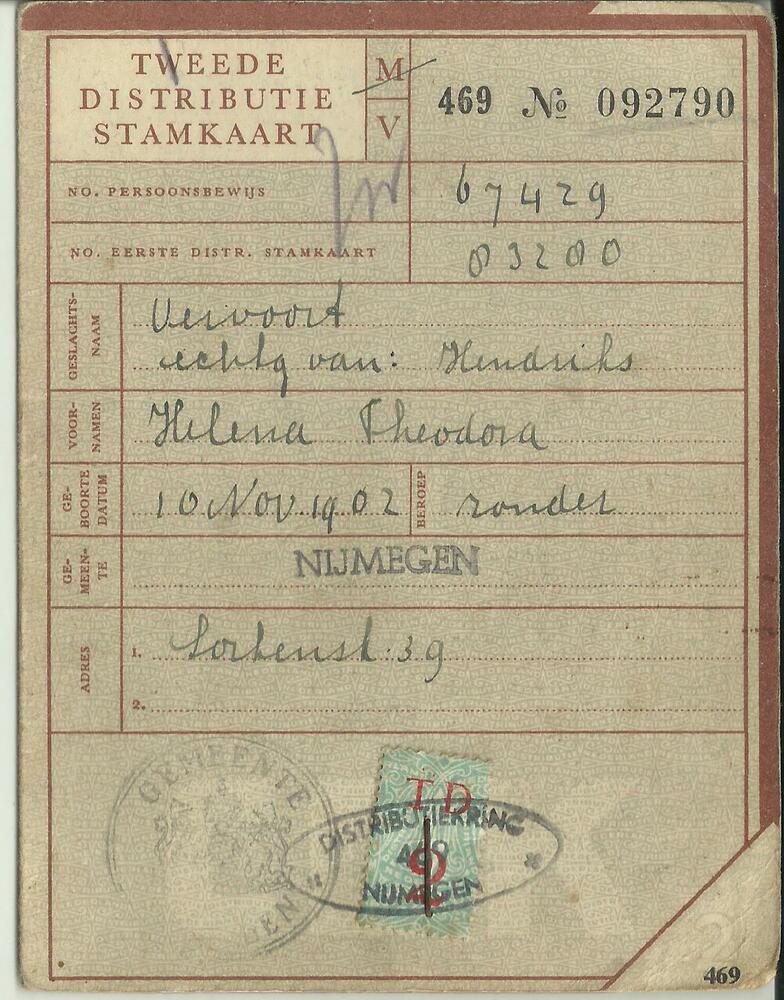 TWEEDE
DISTRIBUTIE
STAMKAART
M
V
469 No 092790
NO. PERSOONSBEWIJS
67429
NO. EERSTE DISTR. STAMKAART
083200
GESLACHTS-
NAAM
Vervoort
echtg van: Hendriks
VOOR-
NAMEN
Helena Theodora
GE-
BOORTE
DATUM
10 Nov. 1902
BEROEP
zonder
GE-
MEEN-
TE
NIJMEGEN
ADRES
1.
39
2.
GEMEENTE
TD
DISTRIBUTIEKRING
469
NIJMEGEN
469